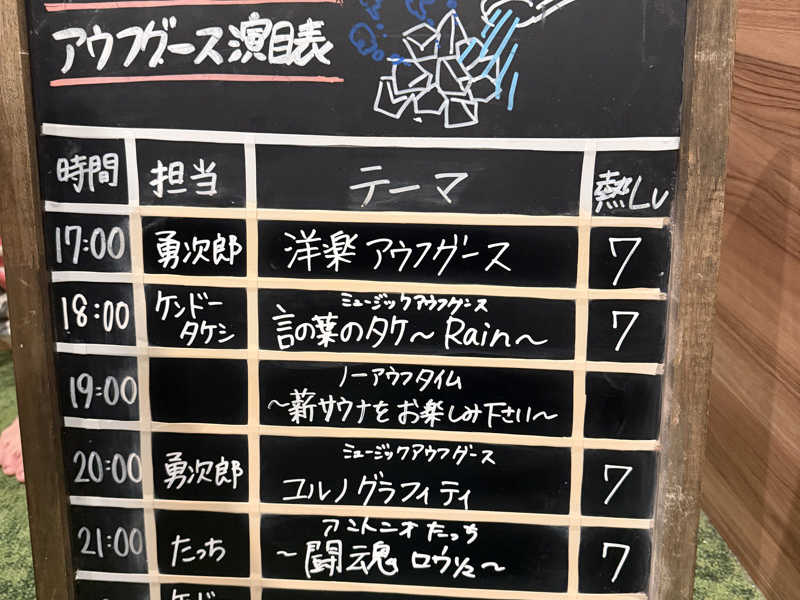 アウフグース演目表
時間 担当 テーマ 熱Lv
17:00 勇次郎 洋楽 アウフグース 7
18:00 ケンドー タケシ ミュージックアウフグース
言の葉のタケ〜Rain〜 7
19:00 ノーアウフタイム
〜薪サウナをお楽しみ下さい〜
20:00 勇次郎 ミュージックアウフグース
コルノグラフィティ 7
21:00 たっち アントニオたっち
〜闘魂 ロウリュ〜 7